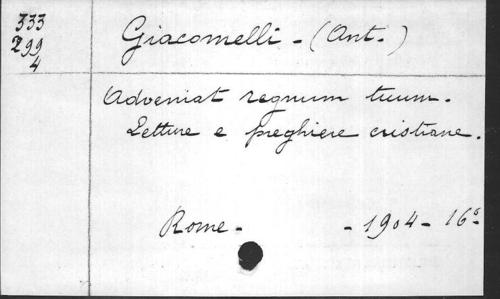 333
299
4
Giacomelli - (Ant.)
Adveniat regnum tuum.
Letture e preghiere cristiane.
Rome - - 1904 - 16º